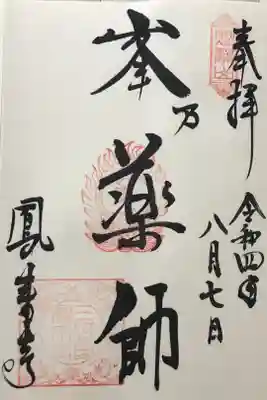 奉拝
令和四年
八月七日
峯乃薬師
鳳来寺